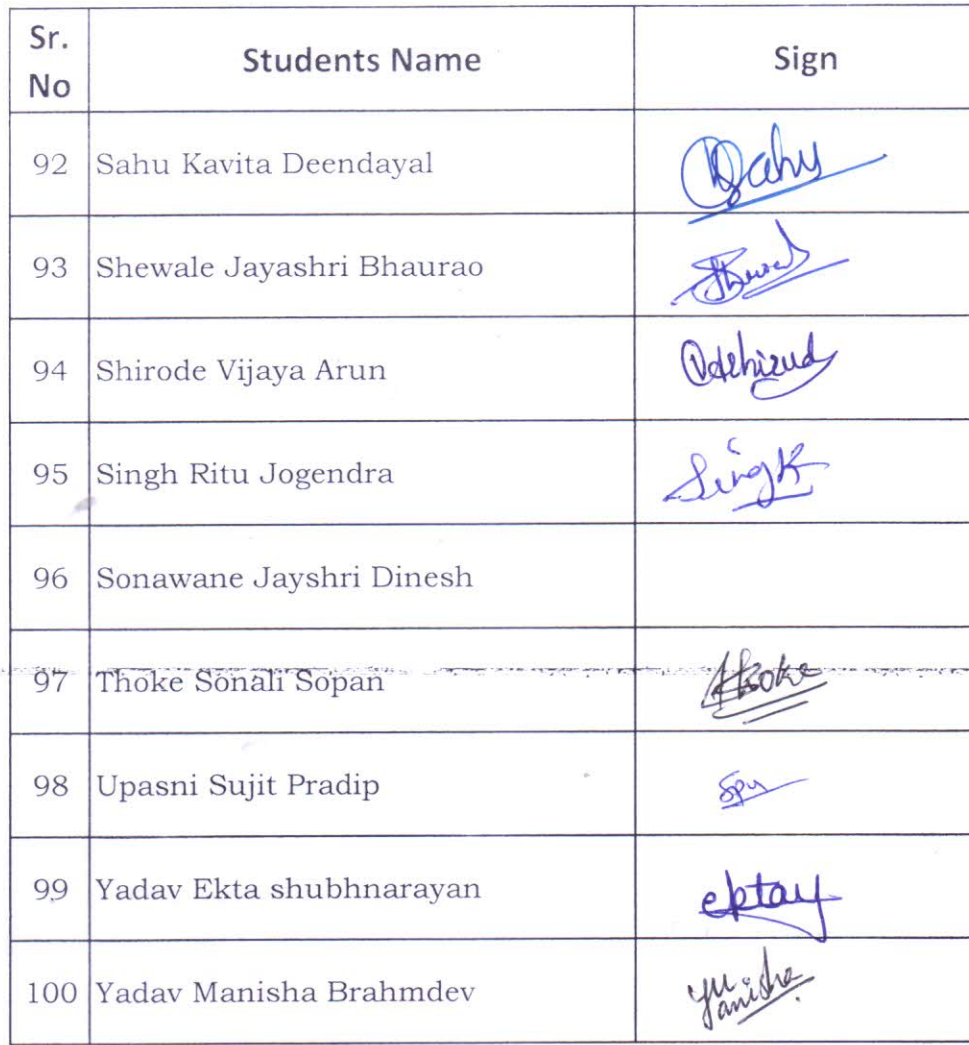 Sr. No Students Name Sign
92 Sahu Kavita Deendayal Sahu
93 Shewale Jayashri Bhaurao
94 Shirode Vijaya Arun
95 Singh Ritu Jogendra
96 Sonawane Jayshri Dinesh
97 Thoke Sonali Sopan Thoke
98 Upasni Sujit Pradip spu
99 Yadav Ekta shubhnarayan ektay
100 Yadav Manisha Brahmdev